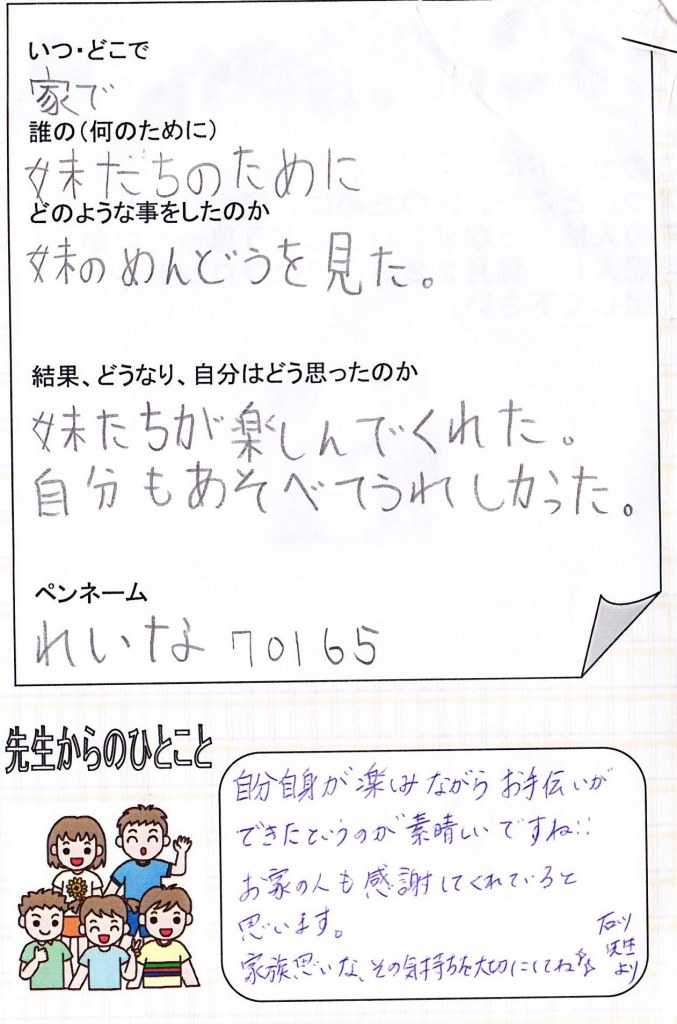 いつ・どこで
家で
誰の(何のために)
妹たちのために
どのような事をしたのか
妹のめんどうを見た。
結果、どうなり、自分はどう思ったのか
妹たちが楽しんでくれた。
自分もあそべてうれしかった。
ペンネーム
れいな 70165
先生からのひとこと
自分自身が楽しみながらお手伝いが
できたというのが素晴しいですね!!
お家の人も感謝してくれていると
思います。
家族思いな、その気持ちを大切にしてね
先生
より